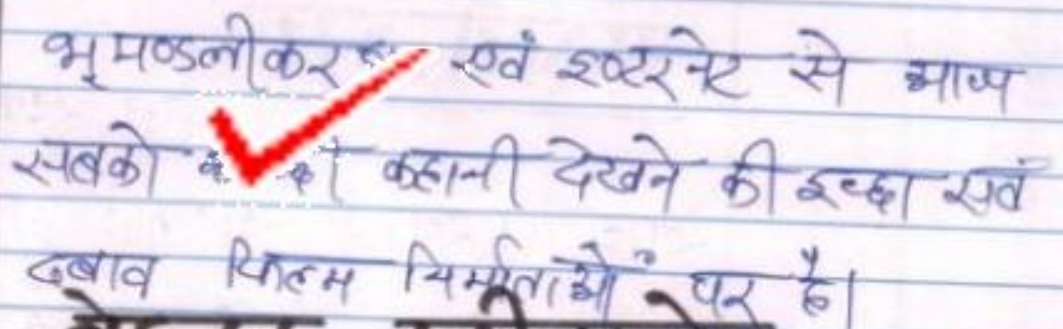 भूमण्डलीकरण एवं इण्टरनेट से आज
सबको कहानी देखने की इच्छा एवं
दबाव फिल्म निर्माताओं पर है।